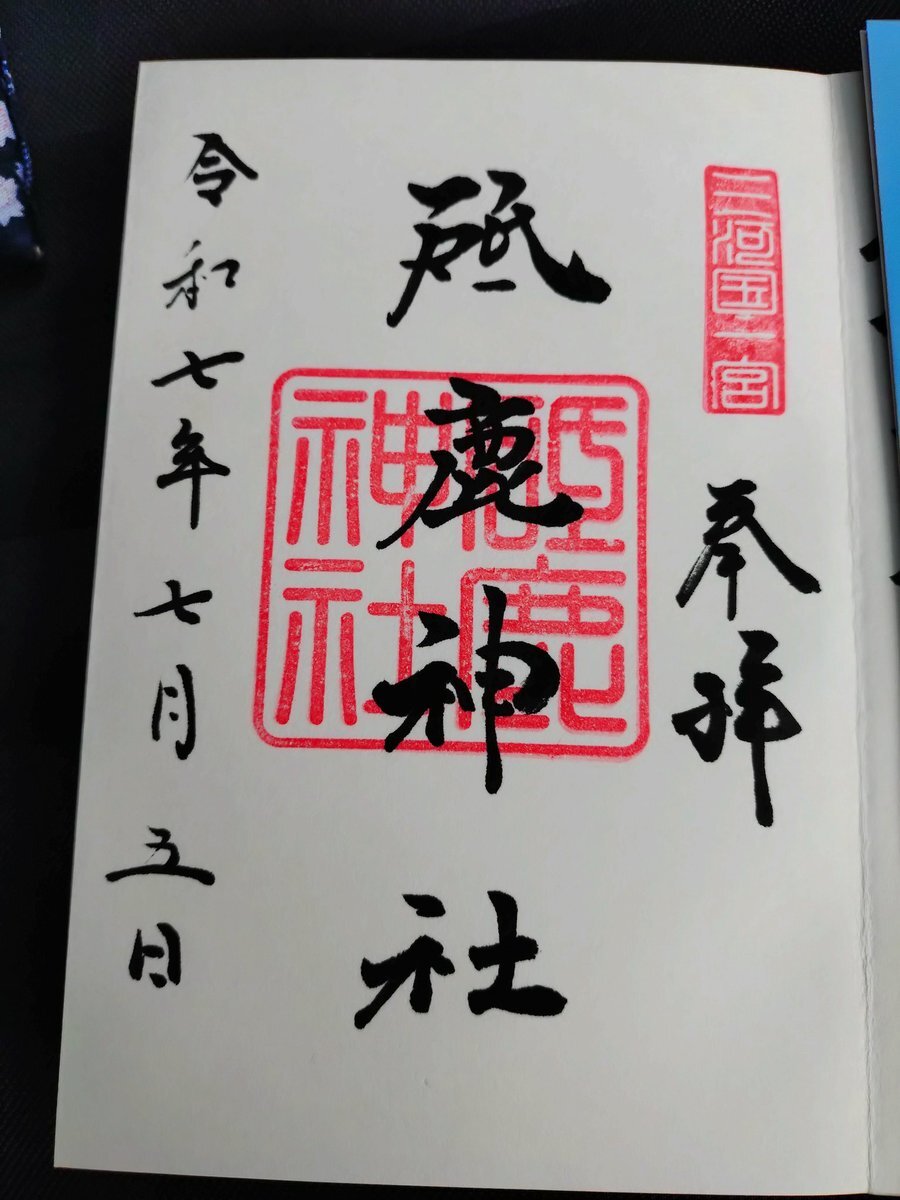 三河国一宮
奉拝
砥鹿神社
砥鹿神社
令和七年七月五日